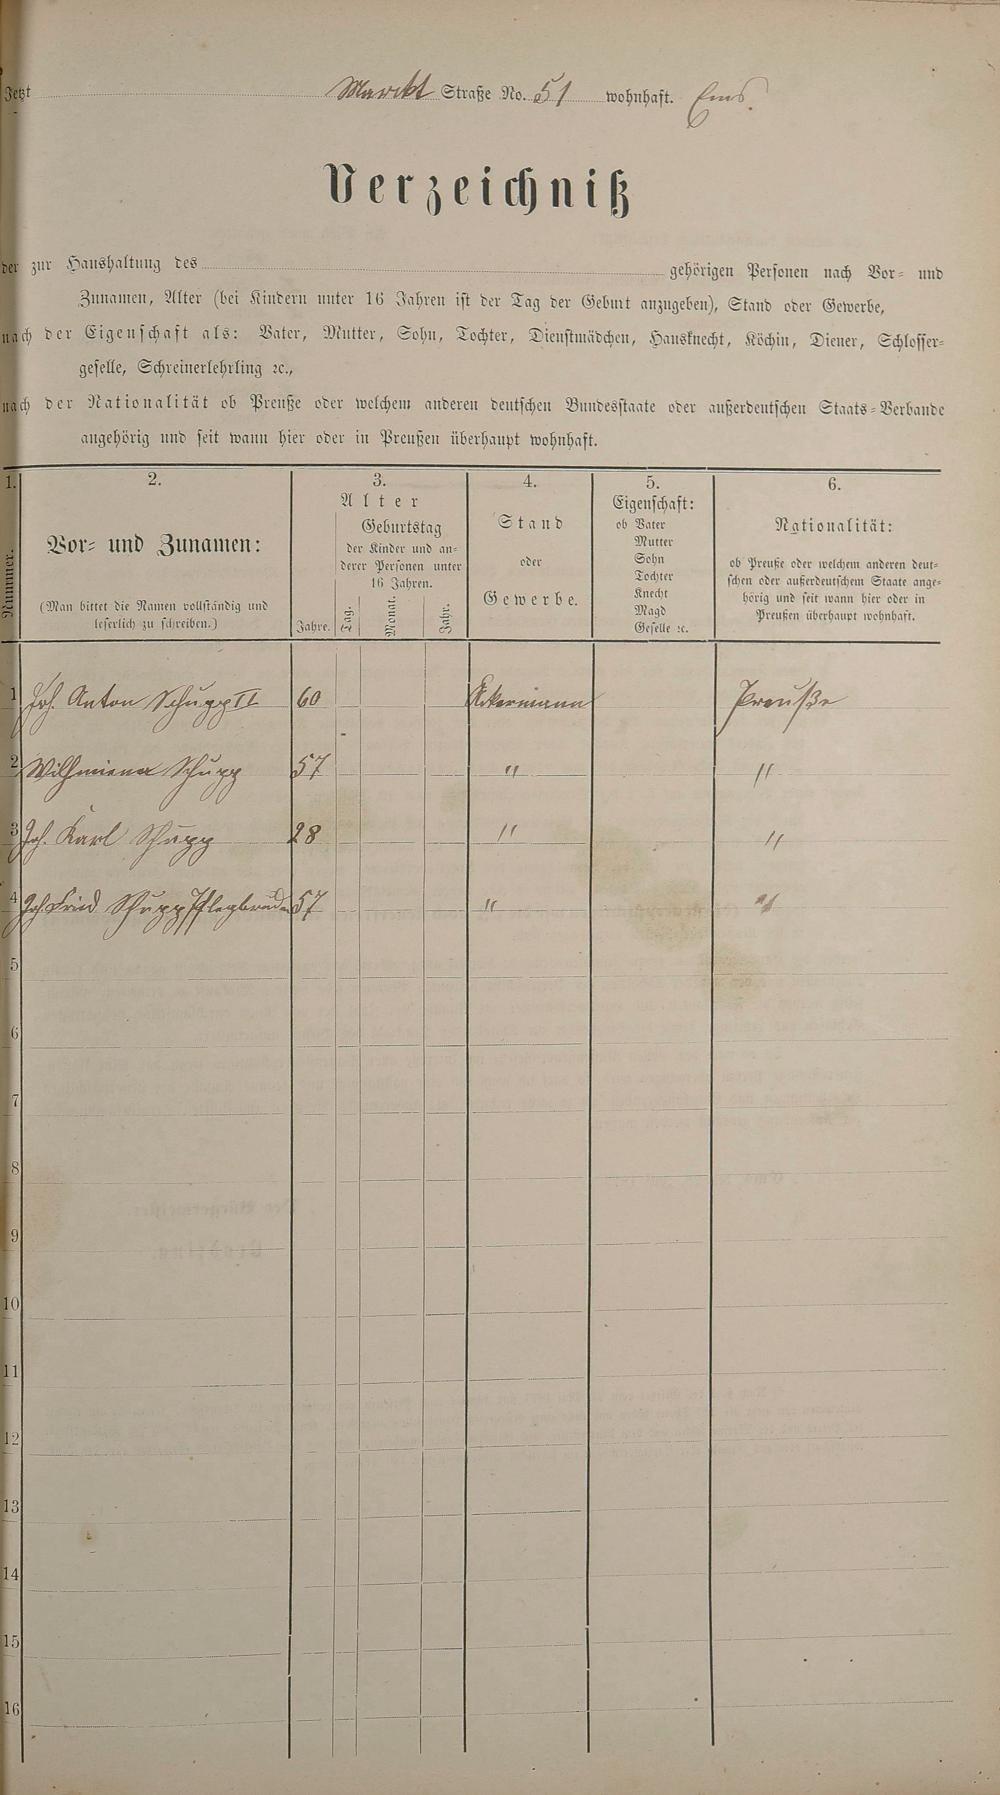 Jetzt Marckt Straße No. 51 wohnhaft. Ems.
Verzeichniß
der zur Haushaltung des gehörigen Personen nach Vor- und
Zunamen, Alter (bei Kindern unter 16 Jahren ist der Tag der Geburt anzugeben), Stand oder Gewerbe,
nach der Eigenschaft als: Vater, Mutter, Sohn, Tochter, Dienstmädchen, Hausknecht, Köchin, Diener, Schlosser-
geselle, Schreinerlehrling ꝛc.,
nach der Nationalität ob Preuße oder welchem anderen deutschen Bundesstaate oder außerdeutschen Staats-Verbande
angehörig und seit wann hier oder in Preußen überhaupt wohnhaft.
1. 2. 3. 4. 5. 6.
Nummer.
Vor- und Zunamen:
(Man bittet die Namen vollständig und
leserlich zu schreiben.)
Alter
Jahre.
Geburtstag
der Kinder und an-
derer Personen unter
16 Jahren.
Tag. Monat. Jahr.
Stand
oder
Gewerbe.
Eigenschaft:
ob Vater
Mutter
Sohn
Tochter
Knecht
Magd
Geselle ꝛc.
Nationalität:
ob Preuße oder welchem anderen deut-
schen oder außerdeutschem Staate ange-
hörig und seit wann hier oder in
Preußen überhaupt wohnhaft.
1 Joh. Anton Schupp II 60 Ackermann Preuße
2 Wilhmiena Schupp 57 " "
3 Joh. Karl Schupp 28 " "
4 Joh Fried Schupp Pflegbruder 57 " "
5
6
7
8
9
10
11
12
13
14
15
16